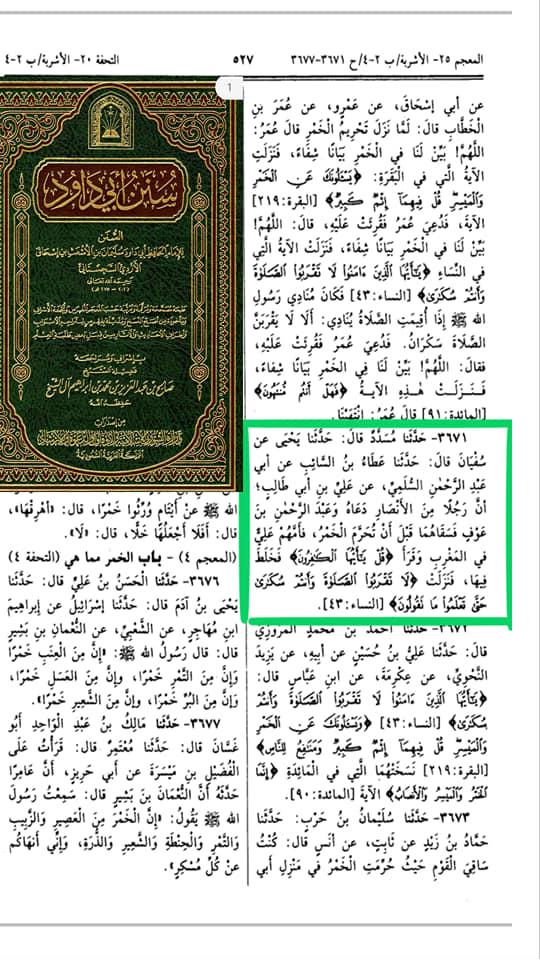 المعجم ٢٥- الأشربة/ ب ٢-٤/ ح ٣٦٧١-٣٦٧٧
٥٢٧
التحفة ٢٠- الأشربة/ ب ٢-٤
عن أبي إسْحَاقَ، عن عَمْرٍو، عن عُمَرَ بنِ
الْخَطَّابِ قالَ: لَمَّا نَزَلَ تَحْرِيمُ الْخَمْرِ قالَ عُمَرُ:
اللَّهُمَّ! بَيِّنْ لَنَا في الْخَمْرِ بَيَانًا شِفَاءً، فَنَزَلَتِ
الآيَةُ الَّتي في الْبَقَرَةِ: ﴿يَسْـَٔلُونَكَ عَنِ الْخَمْرِ
وَالْمَيْسِرِ قُلْ فِيهِمَا إِثْمٌ كَبِيرٌ﴾ [البقرة:٢١٩]
الآيةَ، فَدُعِيَ عُمَرُ فَقُرِئَتْ عَلَيْهِ، قالَ: اللَّهُمَّ!
بَيِّنْ لَنَا في الْخَمْرِ بَيَانًا شِفَاءً، فَنَزَلَتْ الآيَةُ الَّتي
في النِّسَاءِ ﴿يَٰٓأَيُّهَا الَّذِينَ ءَامَنُوا لَا تَقْرَبُوا الصَّلَوٰةَ
وَأَنتُمْ سُكَٰرَىٰ﴾ [النساء:٤٣] فَكَانَ مُنَادِي رَسُولِ
الله ﷺ إذَا أُقِيمَتِ الصَّلَاةُ يُنَادِي: أَلَا لَا يَقْرَبَنَّ
الصَّلَاةَ سَكْرَانُ. فَدُعِيَ عُمَرُ فَقُرِئَتْ عَلَيْهِ،
فقالَ: اللَّهُمَّ! بَيِّنْ لَنَا في الْخَمْرِ بَيَانًا شِفَاءً،
فَنَزَلَتْ هٰذِهِ الآيَةُ ﴿فَهَلْ أَنتُم مُّنتَهُونَ﴾
[المائدة:٩١] قالَ عُمَرُ: انْتَهَيْنَا.
٣٦٧١- حَدَّثَنا مُسَدَّدٌ قالَ: حَدَّثَنا يَحْيَى عن
سُفْيَانَ قالَ: حَدَّثَنا عَطَاءُ بنُ السَّائِبِ عن أبي
عَبْدِ الرَّحْمٰنِ السُّلَمِيِّ، عن عَلِيِّ بنِ أبي طَالِبٍ؛
أنَّ رَجُلًا مِنَ الأنْصَارِ دَعَاهُ وَعَبْدَ الرَّحْمٰنِ بنَ
عَوْفٍ فَسَقَاهُمَا قَبْلَ أنْ تُحَرَّمَ الْخَمْرُ، فأَمَّهُمْ عَلِيٌّ
في المَغْرِبِ وَقَرَأَ ﴿قُلْ يَٰٓأَيُّهَا الْكَٰفِرُونَ﴾ فَخَلَطَ
فِيهَا، فَنَزَلَتْ ﴿لَا تَقْرَبُوا الصَّلَوٰةَ وَأَنتُمْ سُكَٰرَىٰ
حَتَّىٰ تَعْلَمُوا مَا تَقُولُونَ﴾ [النساء:٤٣].
٣٦٧٢- حَدَّثَنا أحْمَدُ بنُ مُحمَّدٍ المَرْوَزِيُّ
قالَ: حَدَّثَنا عَلِيُّ بنُ حُسَيْنٍ عن أبِيهِ، عن يَزِيدَ
النَّحْوِيِّ، عن عِكْرِمَةَ، عن ابنِ عَبَّاسٍ قال:
﴿يَٰٓأَيُّهَا الَّذِينَ ءَامَنُوا لَا تَقْرَبُوا الصَّلَوٰةَ وَأَنتُمْ
سُكَٰرَىٰ﴾ [النساء:٤٣] ﴿وَيَسْـَٔلُونَكَ عَنِ الْخَمْرِ
وَالْمَيْسِرِ قُلْ فِيهِمَا إِثْمٌ كَبِيرٌ وَمَنَٰفِعُ لِلنَّاسِ﴾
[البقرة:٢١٩] نَسَخَتْهُمَا الَّتي في المَائِدَةِ ﴿إِنَّمَا
الْخَمْرُ وَالْمَيْسِرُ وَالْأَنصَابُ﴾ الآيَةَ [المائدة:٩٠].
٣٦٧٣- حَدَّثَنا سُلَيْمانُ بنُ حَرْبٍ: حَدَّثَنا
حَمَّادُ بنُ زَيْدٍ عن ثَابِتٍ، عن أنَسٍ قال: كُنْتُ
سَاقِيَ الْقَوْمِ حَيْثُ حُرِّمَتِ الْخَمْرُ في مَنْزِلِ أبي
1
سُنَنُ أَبِي دَاوُد
الله ﷺ عن أيْتَامٍ وُرِثُوا خَمْرًا، قال: «أَهْرِقْهَا»،
قال: أفَلَا أجْعَلُهَا خَلًّا، قال: «لَا».
(المعجم ٤) - باب الخمر مما هي (التحفة ٤)
٣٦٧٦- حَدَّثَنا الْحَسَنُ بنُ عَلِيٍّ قال: حَدَّثَنا
يَحْيَى بنُ آدَمَ قال: حَدَّثَنا إسْرَائِيلُ عن إبراهِيمَ
ابنِ مُهَاجِرٍ، عن الشَّعْبِيِّ، عن النُّعْمَانِ بنِ بَشِيرٍ
قال: قال رَسُولُ الله ﷺ: «إنَّ مِنَ الْعِنَبِ خَمْرًا
وَإنَّ مِنَ التَّمْرِ خَمْرًا، وإنَّ مِنَ الْعَسَلِ خَمْرًا،
وَإنَّ مِنَ الْبُرِّ خَمْرًا، وإنَّ مِنَ الشَّعِيرِ خَمْرًا».
٣٦٧٧- حَدَّثَنا مَالِكُ بنُ عَبْدِ الْوَاحِدِ أبُو
غَسَّانَ قال: حَدَّثَنا مُعْتَمِرٌ قال: قَرَأْتُ عَلَى
الْفُضَيْلِ بنِ مَيْسَرَةَ عن أبي حَرِيزٍ، أنَّ عَامِرًا
حَدَّثَهُ أنَّ النُّعْمَانَ بنَ بَشِيرٍ قال: سَمِعْتُ رَسُولَ
الله ﷺ يَقُولُ: «إنَّ الْخَمْرَ مِنَ الْعَصِيرِ وَالزَّبِيبِ
وَالتَّمْرِ وَالْحِنْطَةِ وَالشَّعِيرِ وَالذُّرَةِ، وَإنِّي أنْهَاكُم
عنْ كُلِّ مُسْكِرٍ».